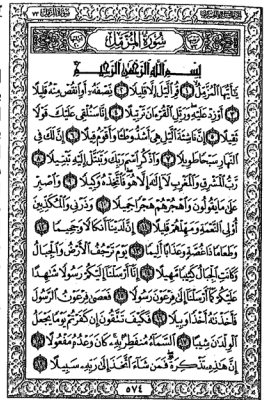 سُورَةُ المُزَّمِّل
بِسْمِ اللَّهِ الرَّحْمَٰنِ الرَّحِيمِ
يَا أَيُّهَا الْمُزَّمِّلُ ١ قُمِ اللَّيْلَ إِلَّا قَلِيلًا ٢ نِصْفَهُ أَوِ انْقُصْ مِنْهُ قَلِيلًا
٣ أَوْ زِدْ عَلَيْهِ وَرَتِّلِ الْقُرْآنَ تَرْتِيلًا ٤ إِنَّا سَنُلْقِي عَلَيْكَ قَوْلًا
ثَقِيلًا ٥ إِنَّ نَاشِئَةَ اللَّيْلِ هِيَ أَشَدُّ وَطْئًا وَأَقْوَمُ قِيلًا ٦ إِنَّ لَكَ فِي
النَّهَارِ سَبْحًا طَوِيلًا ٧ وَاذْكُرِ اسْمَ رَبِّكَ وَتَبَتَّلْ إِلَيْهِ تَبْتِيلًا ٨
رَبُّ الْمَشْرِقِ وَالْمَغْرِبِ لَا إِلَٰهَ إِلَّا هُوَ فَاتَّخِذْهُ وَكِيلًا ٩ وَاصْبِرْ
عَلَىٰ مَا يَقُولُونَ وَاهْجُرْهُمْ هَجْرًا جَمِيلًا ١٠ وَذَرْنِي وَالْمُكَذِّبِينَ
أُولِي النَّعْمَةِ وَمَهِّلْهُمْ قَلِيلًا ١١ إِنَّ لَدَيْنَا أَنْكَالًا وَجَحِيمًا ١٢
وَطَعَامًا ذَا غُصَّةٍ وَعَذَابًا أَلِيمًا ١٣ يَوْمَ تَرْجُفُ الْأَرْضُ وَالْجِبَالُ
وَكَانَتِ الْجِبَالُ كَثِيبًا مَهِيلًا ١٤ إِنَّا أَرْسَلْنَا إِلَيْكُمْ رَسُولًا شَاهِدًا
عَلَيْكُمْ كَمَا أَرْسَلْنَا إِلَىٰ فِرْعَوْنَ رَسُولًا ١٥ فَعَصَىٰ فِرْعَوْنُ الرَّسُولَ
فَأَخَذْنَاهُ أَخْذًا وَبِيلًا ١٦ فَكَيْفَ تَتَّقُونَ إِنْ كَفَرْتُمْ يَوْمًا يَجْعَلُ
الْوِلْدَانَ شِيبًا ١٧ السَّمَاءُ مُنْفَطِرٌ بِهِ كَانَ وَعْدُهُ مَفْعُولًا ١٨
إِنَّ هَٰذِهِ تَذْكِرَةٌ فَمَنْ شَاءَ اتَّخَذَ إِلَىٰ رَبِّهِ سَبِيلًا ١٩
٥٧٤